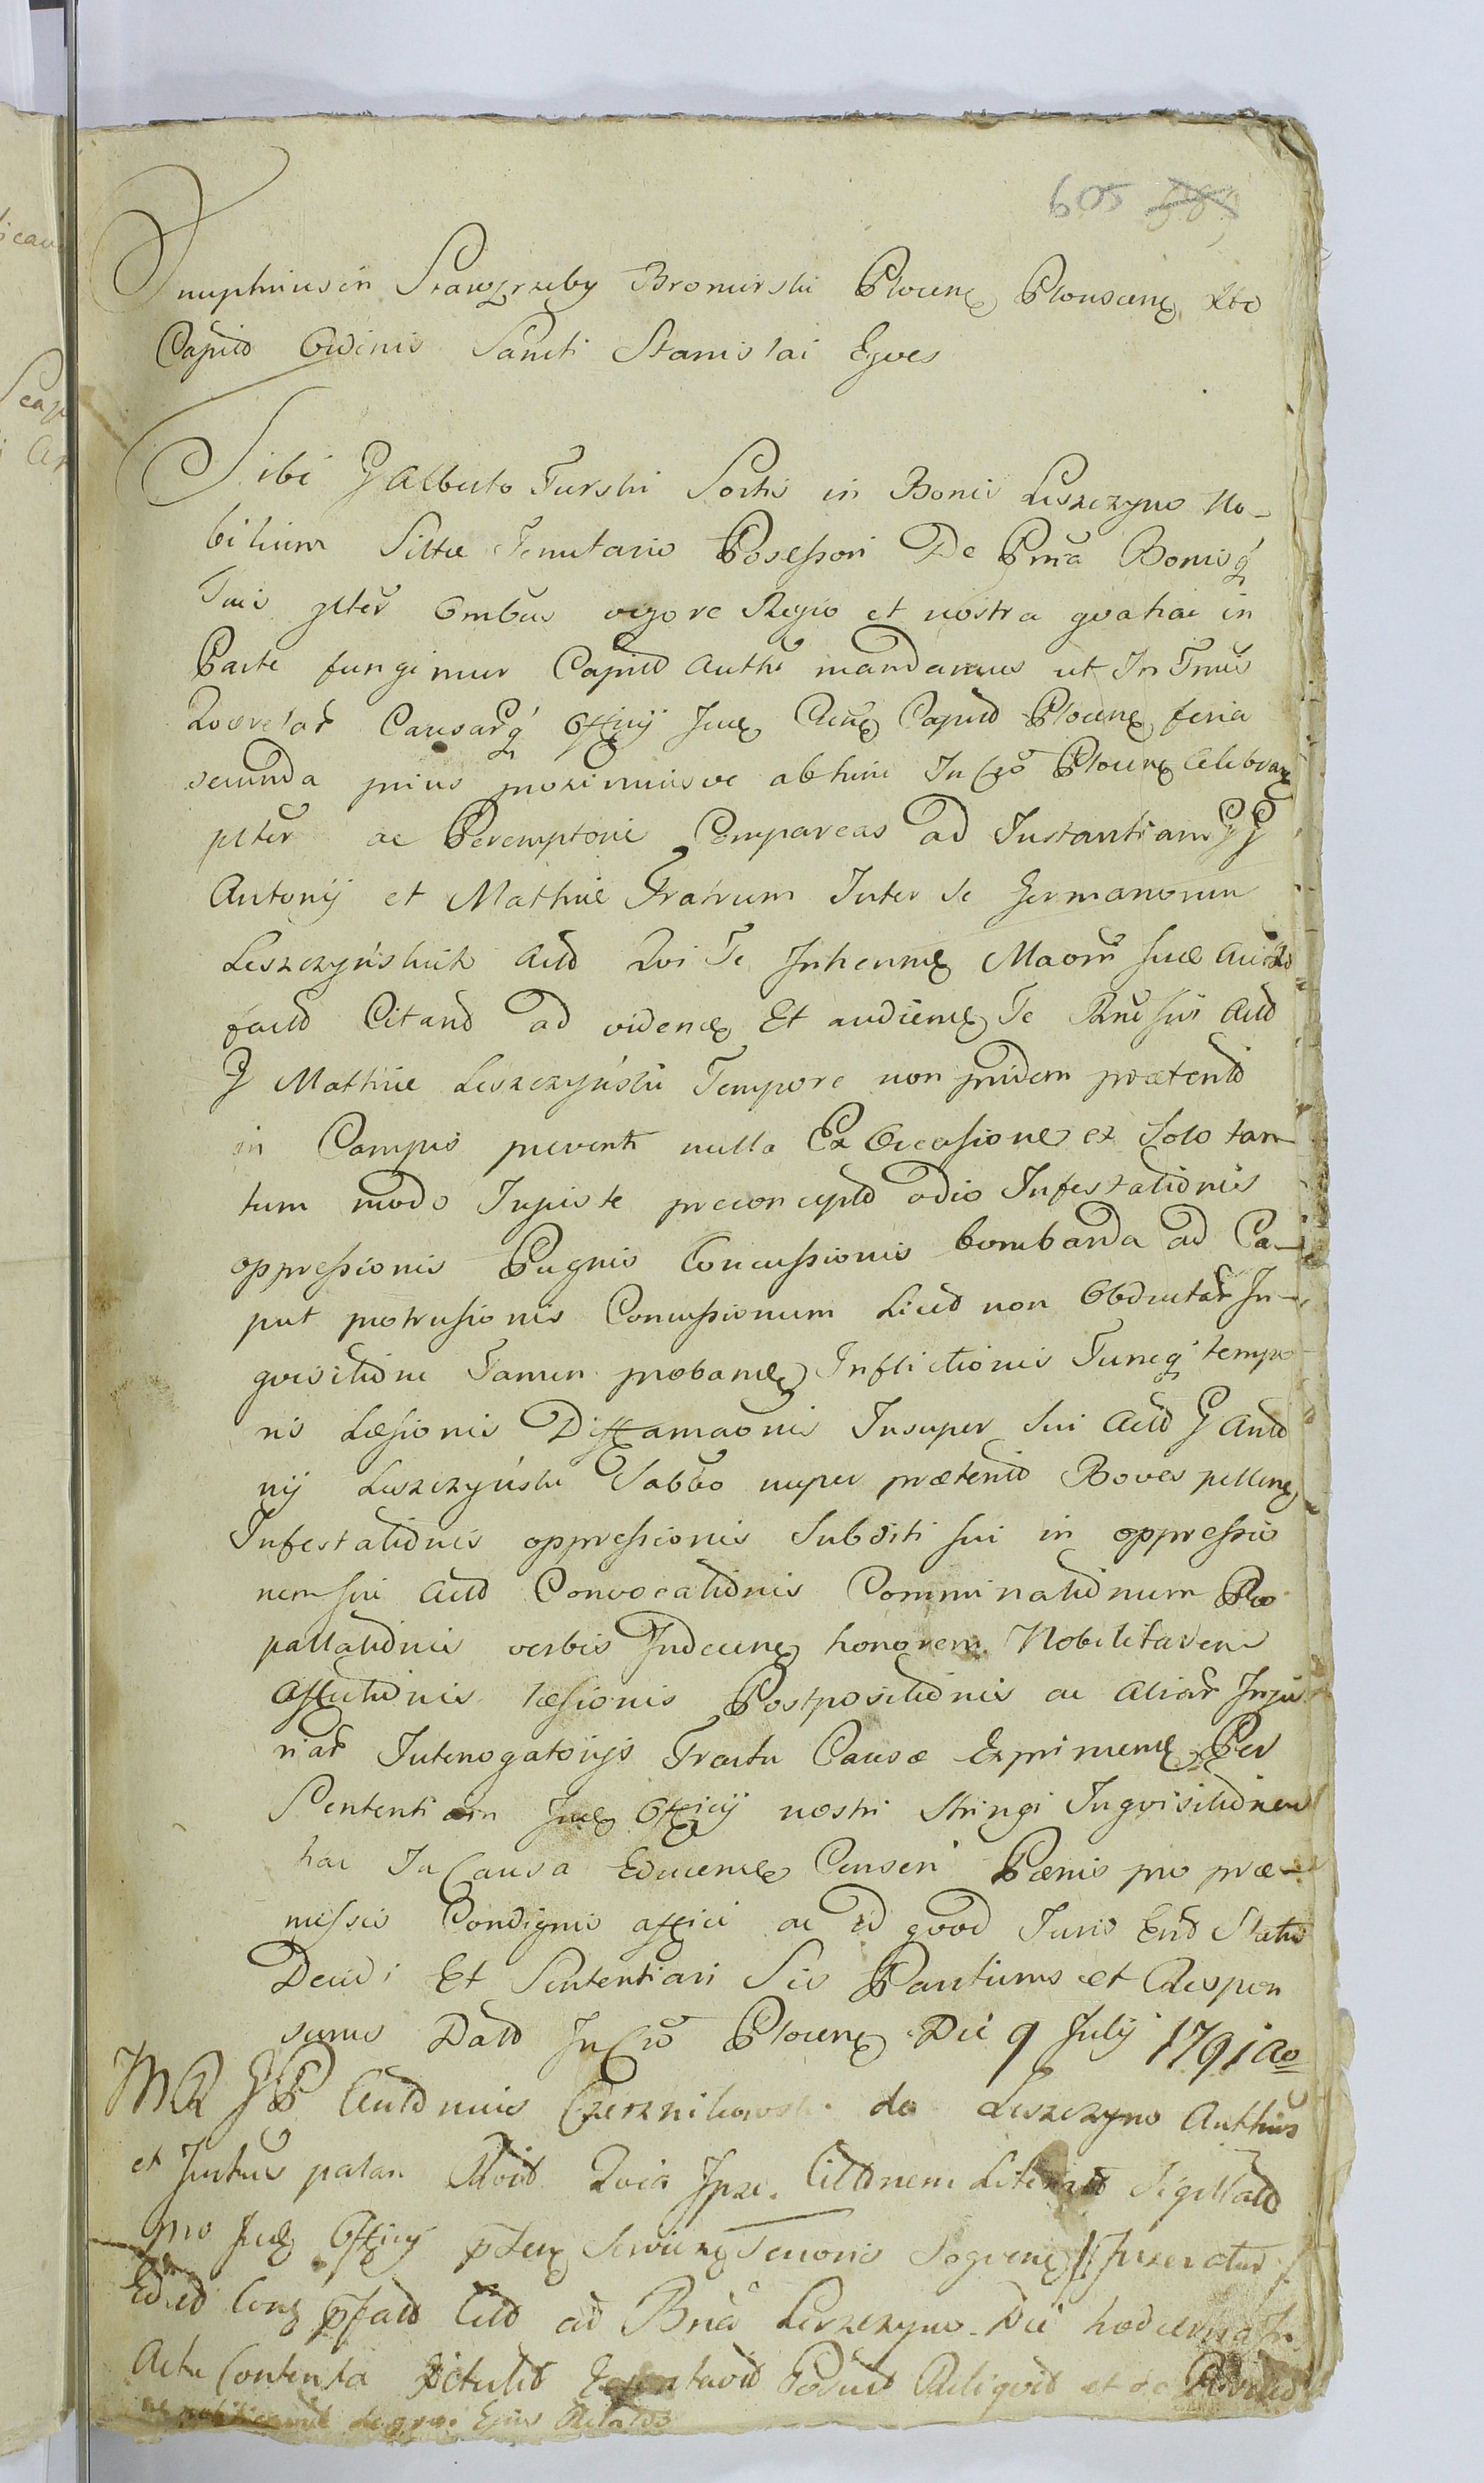 605
Onuphrius in Srawgrzeby Bromirski Plocens Plonscens
Capnus Ordinis Sancti Stanislai Eques
Tibi G Alberto Turski Sortis in Bonis Leszczyno No-
bilium Sittae Tenutario Possessori De Prna Bonisq
Tuis glter Ombus vigore Regio et nostra qua hac in
Parte fungimur Capnli Autthe mandamus ut In Tmis
Querelar Causarq Officij Jud Cens Capnlis Plocens feria
secunda prius proximius ve abhinc In Cro Plocens Celebran
plter ac Peremptorie Compareas ad Instantiam GG
Antonij et Mathiae Fratrum Inter se Germanorum
Leszczyńskich Actd Qui Te Inherendo suae
facto Citand ad vidend Et audiend Te sui Actd
G Mathiae Leszczyński Tempore non pridem praeterito
in Campis preventi nulla Ex Occasione ex Solo tan-
tum modo Injuste preconcepto odio Infestationis
oppressionis Pugnis Concussionis bombarda ad Ca-
put protrusionis Concussionum Licet non Obductar In-
quisitione Tamen proband Inflictionis Tuncq tempo-
ris Laesionis Diffamaonis Insuper sui Actd G Anto
nij Leszczyński Sabbo nuper praeterito Boves pellend
Infestationis oppressionis Subditi sui in oppressio
nem sui Actd Convocationis Comminationum Pro
pallationis verbis Indecend honorem Nobilitarem
laesionis Postpositionis ac aliar Inju
riar Interrogatorijs Tractu Causae Exprimend Per
Sententiam Jud Officij nostri Stringi Inquisitionem
hac In Causa Educend Censeri Paenis pro prae-
missis Condignis affici ac id quod Juris Erit Statui
Decidi Et Sententiari Sis Pariturus et Respon
surus Datt In Cro Plocens Die 9 July 1791 ao
MR GP Antonius Czerznikowski de Leszczyno Autthus
et Jurtus palam Quia Ipse Citationem Literar Sigillat
pro Jud Officij Tenoris Sequens // Inseratur //
Leszczyno Die hodierna
Actu Contenta Reliquit et